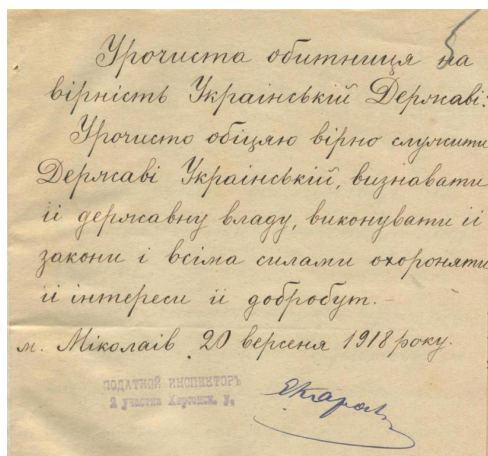 5
Урочиста обитниця на
вірність Українській Державі:
Урочисто обіцяю вірно служити
Державі Українській, визнавати
її державну владу, виконувати її
закони і всіма силами охороняти
її інтереси її добробут.
м. Міколаїв 20 версеня 1918 року.
ПОДАТНОЙ ИНСПЕКТОРЪ
2 участка Херсонск. у.